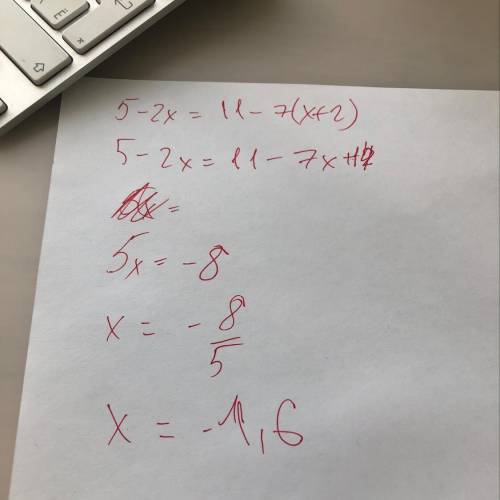 5-2x = 11-7(x+2)
5-2x = 11-7x+14
=
5x = -8
x = -8/5
x = -1,6